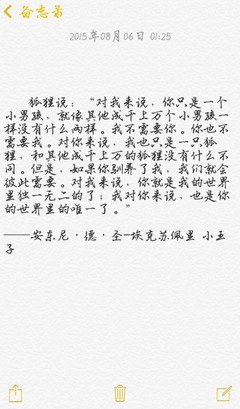 备忘录
2015年08月06日 01:25
狐狸说：“对我来说，你只是一个
小男孩，就像其他成千上万个小男孩一
样没有什么两样。我不需要你。你也不
需要我。对你来说，我也只是一只狐
狸，和其他成千上万的狐狸没有什么不
同。但是，如果你驯养了我，我们就会
彼此需要。对我来说，你就是我的世界
里独一无二的了；我对你来说，也是你
的世界里的唯一了。”
——安东尼·德·圣-埃克苏佩里 小王
子